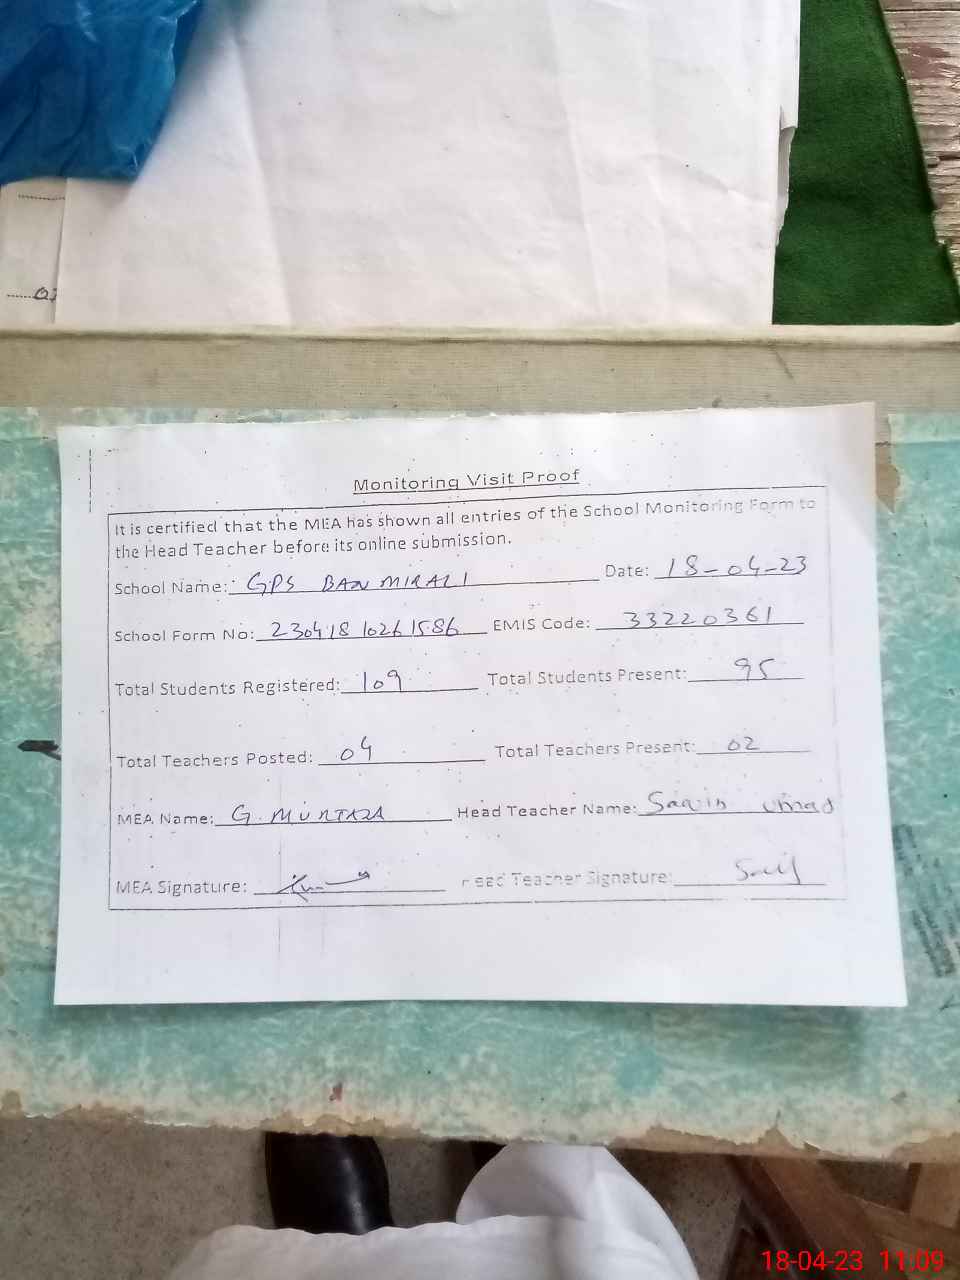 Monitoring Visit Proof
It is certified that the MEA has shown all entries of the School Monitoring Form to
the Head Teacher before its online submission.
School Name: GPS BAN MIRALI Date: 18-04-23
School Form No: 230418 10261586 EMIS Code: 33220361
Total Students Registered: 109 Total Students Present: 95
Total Teachers Posted: 04 Total Teachers Present: 02
MEA Name: G. MURTAZA Head Teacher Name:
MEA Signature: Head Teacher Signature:
18-04-23 11:09